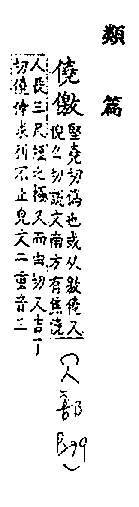 類篇
僥儌
堅堯切偽也或从敫僥又
倪么切說文南方有焦僥
人長三尺短之極又吉了
切僥倖求利不止皃文二重音三
(人部